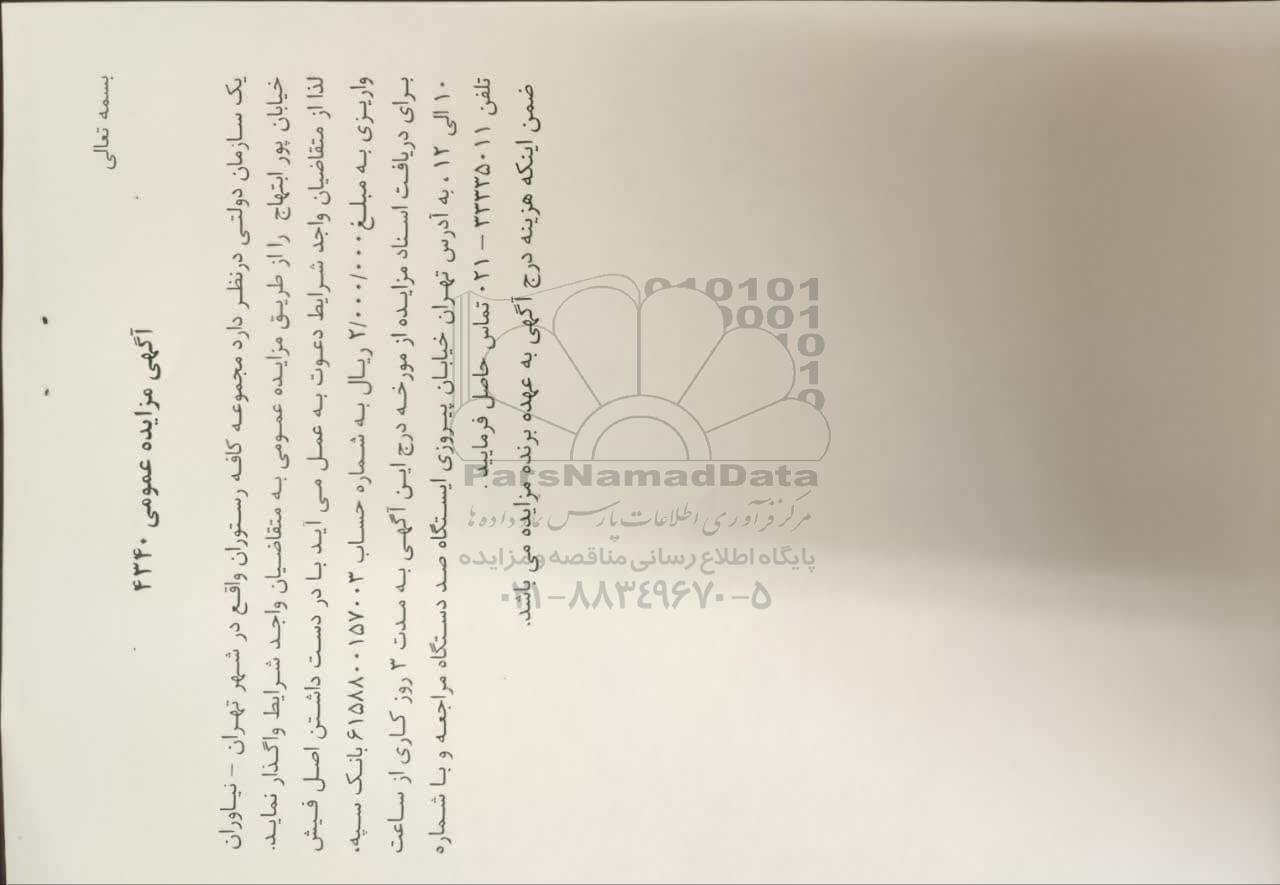 بسمه تعالی
آگهی مزایده عمومی ۴۳۴۰
یک سازمان دولتی درنظر دارد مجموعه کافه رستوران واقع در شهر تهران - نیاوران
خیابان پور ابتهاج را از طریق مزایده عمومی به متقاضیان واجد شرایط واگذار نماید.
لذا از متقاضیان واجد شرایط دعوت به عمل می آید با در دست داشتن اصل فیش
واریزی به مبلغ ۲/۰۰۰/۰۰۰ ریال به شماره حساب ۶۱۵۸۸۰۰۱۵۷۰۰۳ بانک سپه،
برای دریافت اسناد مزایده از مورخه درج این آگهی به مدت ۳ روز کاری از ساعت
۱۰ الی ۱۲ ، به آدرس تهران خیابان پیروزی ایستگاه صد دستگاه مراجعه و با شماره
تلفن ۳۳۳۳۵۰۱۱ - ۰۲۱ تماس حاصل فرمایید .
ضمن اینکه هزینه درج آگهی به عهده برنده مزایده می باشد.
010101
0001
10
1
0
ParsNamadData
مرکز فرآوری اطلاعات پارس نماد داده ها
پایگاه اطلاع رسانی مناقصه و مزایده
۰۲۱-۸۸۳۴۹۶۷۰-۵